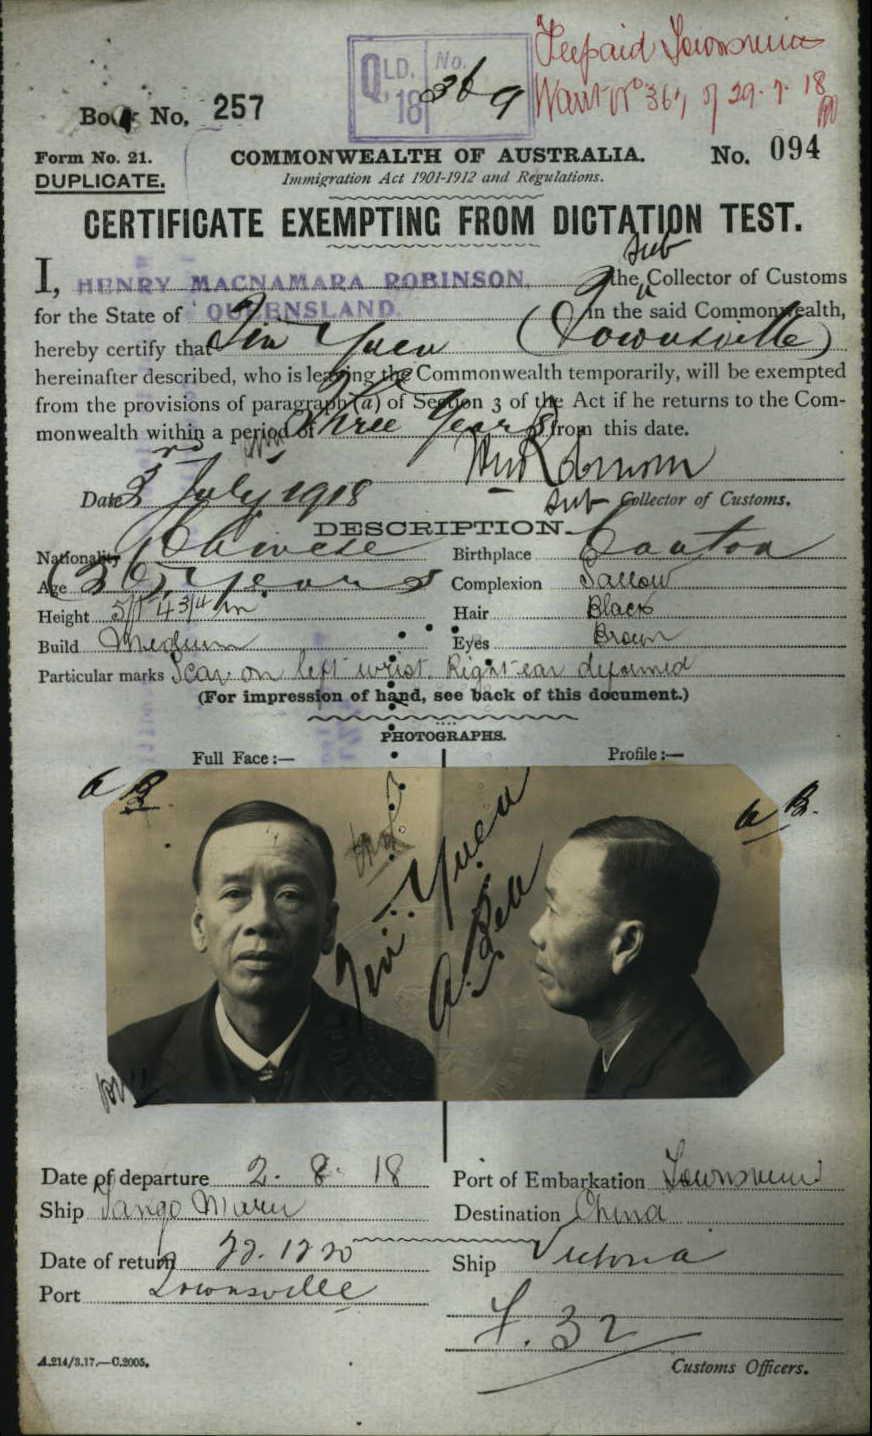 QLD. 18 No. 369
Feepaid Townsville
Warrt No 361 of 29.7.18
Book No. 257
Form No. 21.
DUPLICATE.
COMMONWEALTH OF AUSTRALIA.
Immigration Act 1901-1912 and Regulations.
No. 094
CERTIFICATE EXEMPTING FROM DICTATION TEST.
I, HENRY MACNAMARA ROBINSON, the Sub Collector of Customs
for the State of QUEENSLAND in the said Commonwealth,
hereby certify that Tim Yuen (Townsville)
hereinafter described, who is leaving the Commonwealth temporarily, will be exempted
from the provisions of paragraph (a) of Section 3 of the Act if he returns to the Com-
monwealth within a period of Three Years from this date.
Date July 1918
Sub Collector of Customs.
DESCRIPTION.
Nationality Chinese Birthplace Canton
Age Years Complexion Sallow
Height 5ft 4 3/4 in Hair Black
Build Medium Eyes Brown
Particular marks Scar on left wrist. Right ear deformed
(For impression of hand, see back of this document.)
PHOTOGRAPHS.
Full Face :— Profile :—
A B. A B.
Tim Yuen
A. Bell
Date of departure 2. 8. 18 Port of Embarkation Townsville
Ship Tango Maru Destination China
Date of return 22.12 20 Ship Victoria
Port Townsville
F. 32
A.214/3.17.—C.2005.
Customs Officers.